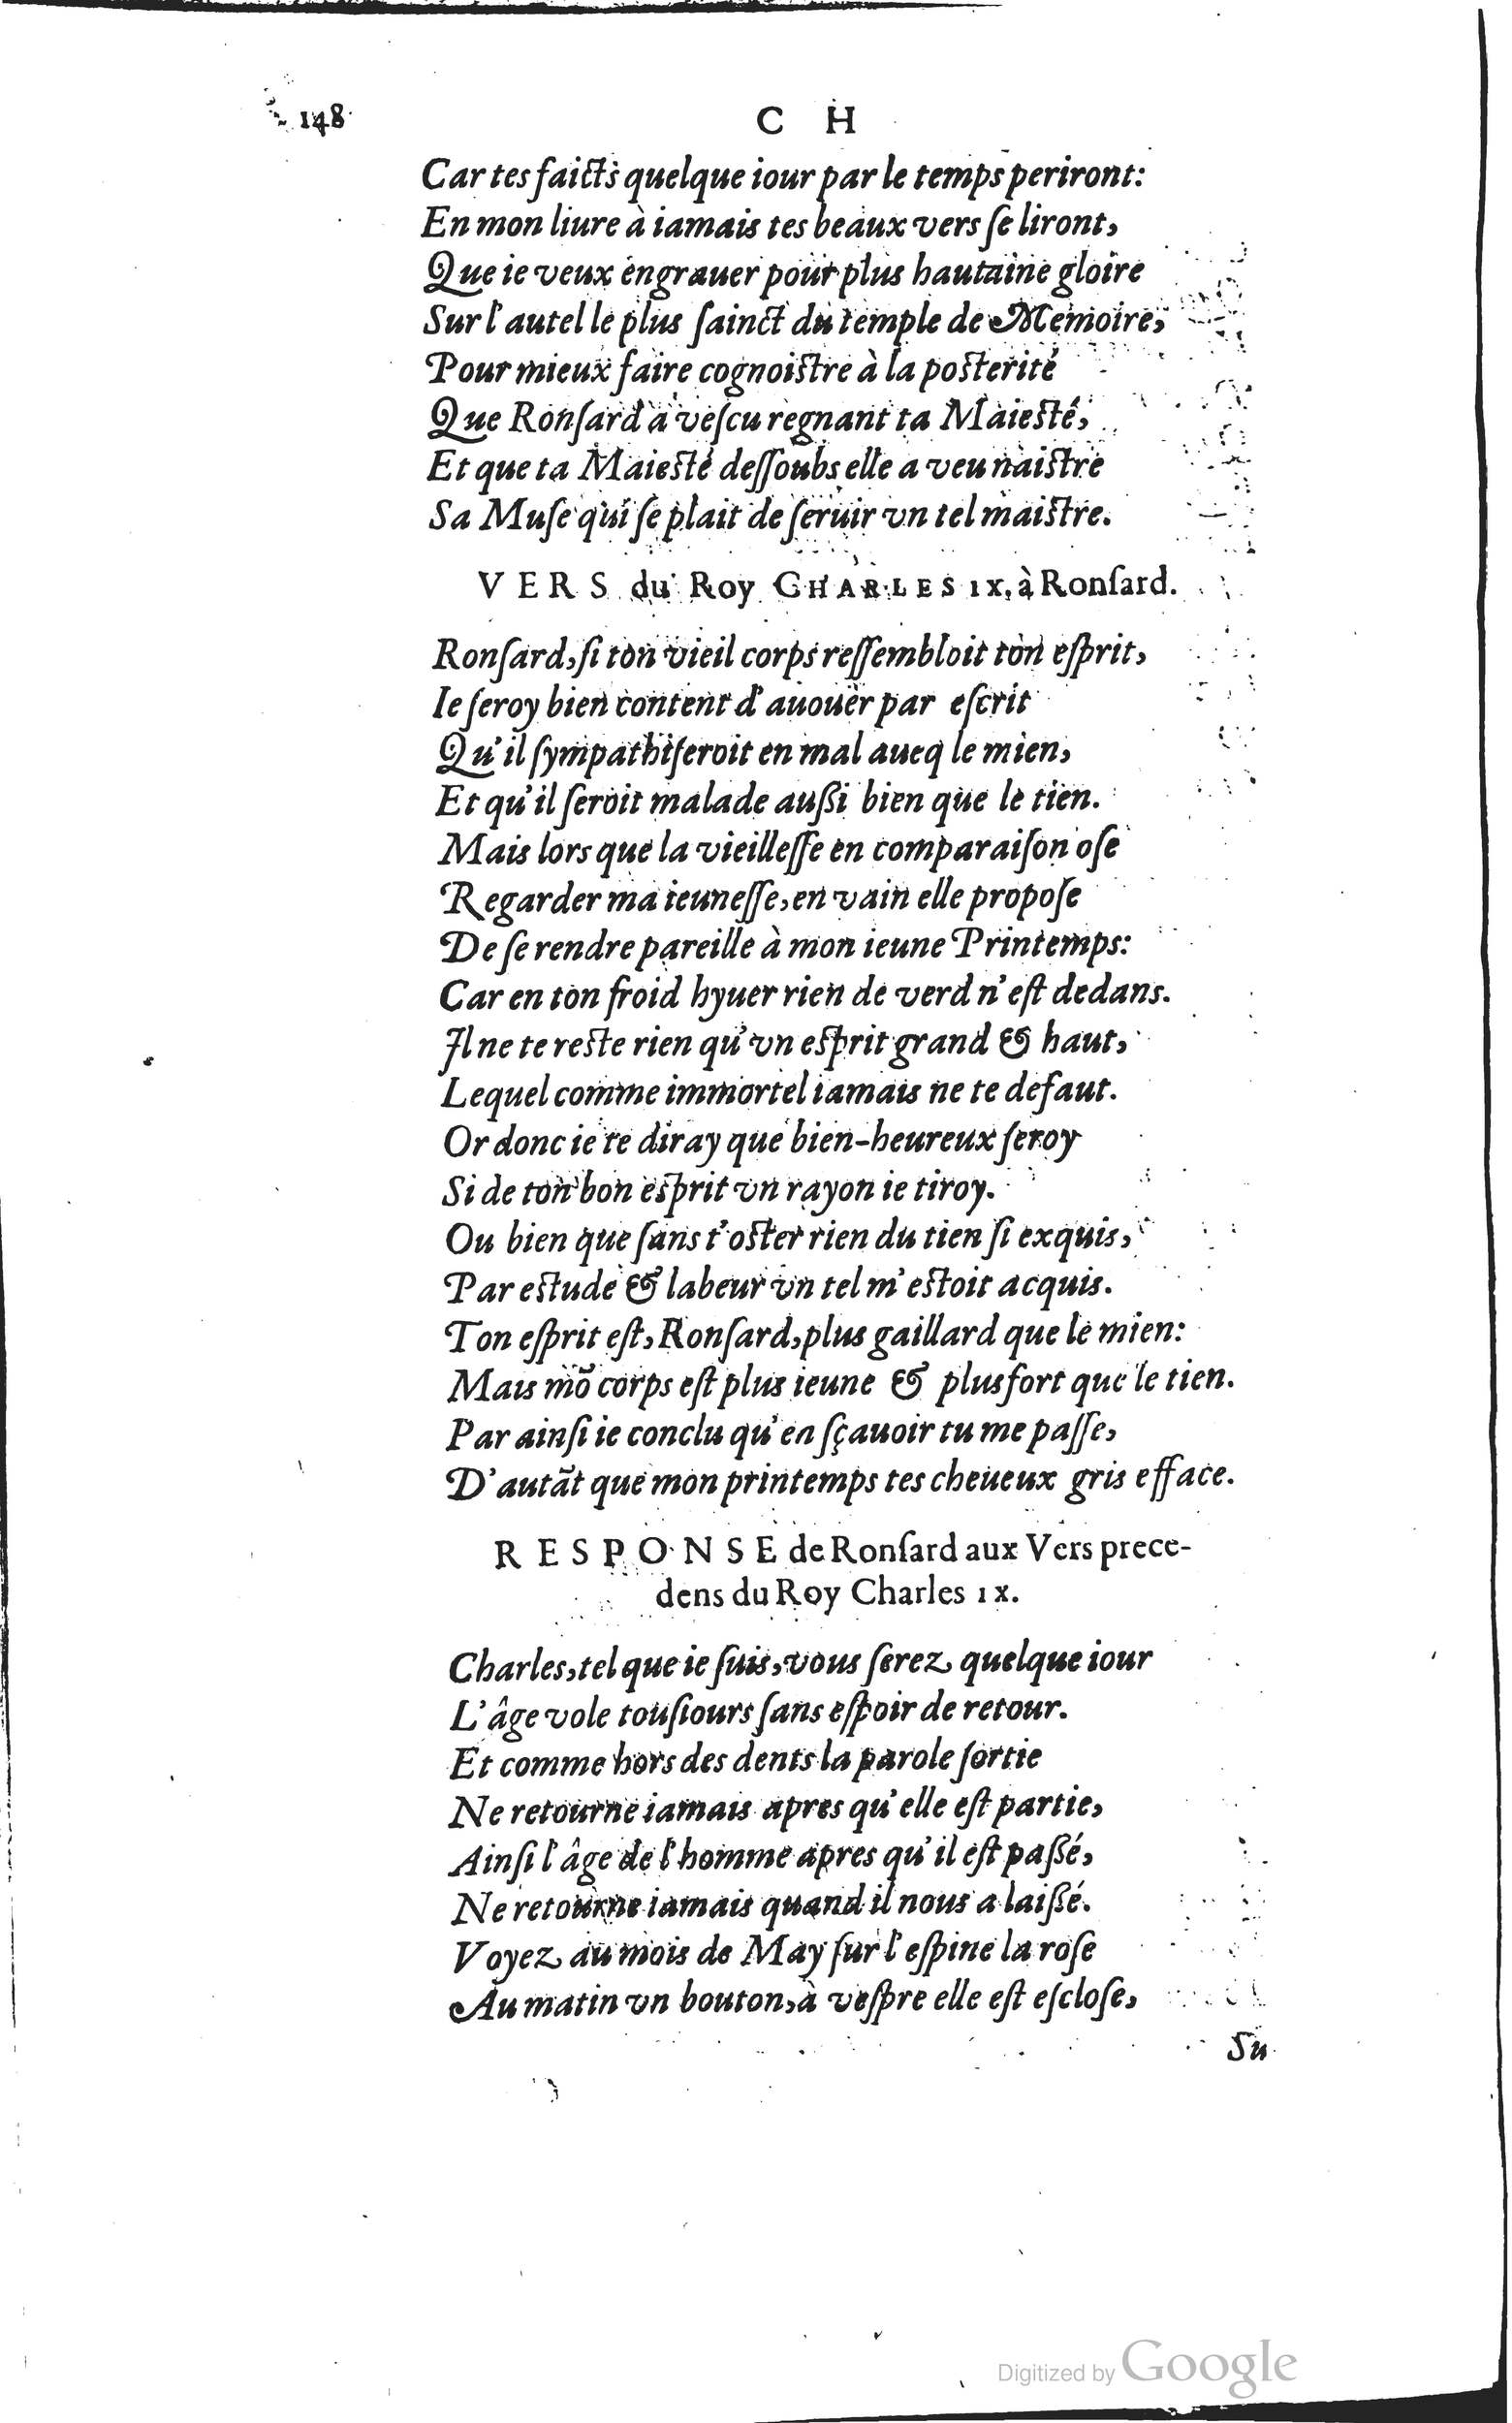 148 C H
Car tes faicts quelque iour par le temps periront:
En mon liure à iamais tes beaux vers ſe liront,
Que ie veux engrauer pour plus hautaine gloire
Sur l'autel le plus ſainct du temple de Memoire,
Pour mieux faire cognoiſtre à la poſterité
Que Ronſard à veſcu regnant ta Maieſté,
Et que ta Maieſté deſſoubs elle a veu naiſtre
Sa Muſe qui ſe plait de ſeruir vn tel maiſtre.
VERS du Roy CHARLES IX, à Ronſard.
Ronſard, ſi ton vieil corps reſſembloit ton eſprit,
Ie ſeroy bien content d'auouër par eſcrit
Qu'il ſympathiſeroit en mal aueq le mien,
Et qu'il ſeroit malade auſſi bien que le tien.
Mais lors que la vieilleſſe en comparaiſon oſe
Regarder ma ieuneſſe, en vain elle propoſe
De ſe rendre pareille à mon ieune Printemps:
Car en ton froid hyuer rien de verd n'eſt dedans.
Il ne te reſte rien qu'vn eſprit grand & haut,
Lequel comme immortel iamais ne te defaut.
Or donc ie te diray que bien-heureux ſeroy
Si de ton bon eſprit vn rayon ie tiroy.
Ou bien que ſans t'oſter rien du tien ſi exquis,
Par eſtude & labeur vn tel m'eſtoit acquis.
Ton eſprit eſt, Ronſard, plus gaillard que le mien:
Mais mõ corps eſt plus ieune & plus fort que le tien.
Par ainſi ie conclu qu'en ſçauoir tu me paſſe,
D'autãt que mon printemps tes cheueux gris efface.
RESPONSE de Ronſard aux Vers prece-
dens du Roy Charles IX.
Charles, tel que ie ſuis, vous ſerez quelque iour
L'âge vole touſiours ſans eſpoir de retour.
Et comme hors des dents la parole ſortie
Ne retourne iamais apres qu'elle eſt partie,
Ainſi l'âge de l'homme apres qu'il eſt paſſé,
Ne retourne iamais quand il nous a laiſſé.
Voyez au mois de May ſur l'eſpine la roſe
Au matin vn bouton, à veſpre elle eſt eſcloſe,
Su
Digitized by Google